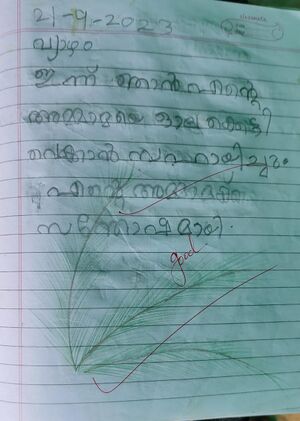 classmate
21-9-2023
വ്യാഴം
ഇന്ന് ഞാൻ എന്റെ
അമ്മാമ്മയെ മാല കെട്ടി
വെക്കാൻ സഹായിച്ചു.
എന്റെ അമ്മാമ്മക്ക്
സന്തോഷമായി.
good